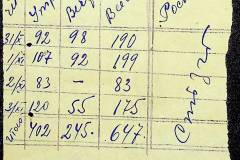 Утр Веч Все Рос
31/XI 92 98 190
1/XII 107 92 199
2/XII 83 — 83
3/XII 120 55 175
Итого 402 245. 647